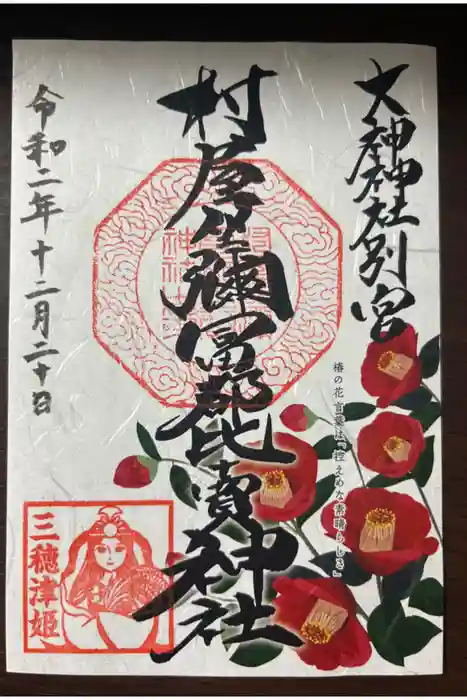 大神神社別宮
村屋坐彌冨都比賣神社
令和二年十二月二十日
椿の花言葉は「控えめな素晴らしさ」
三穂津姫